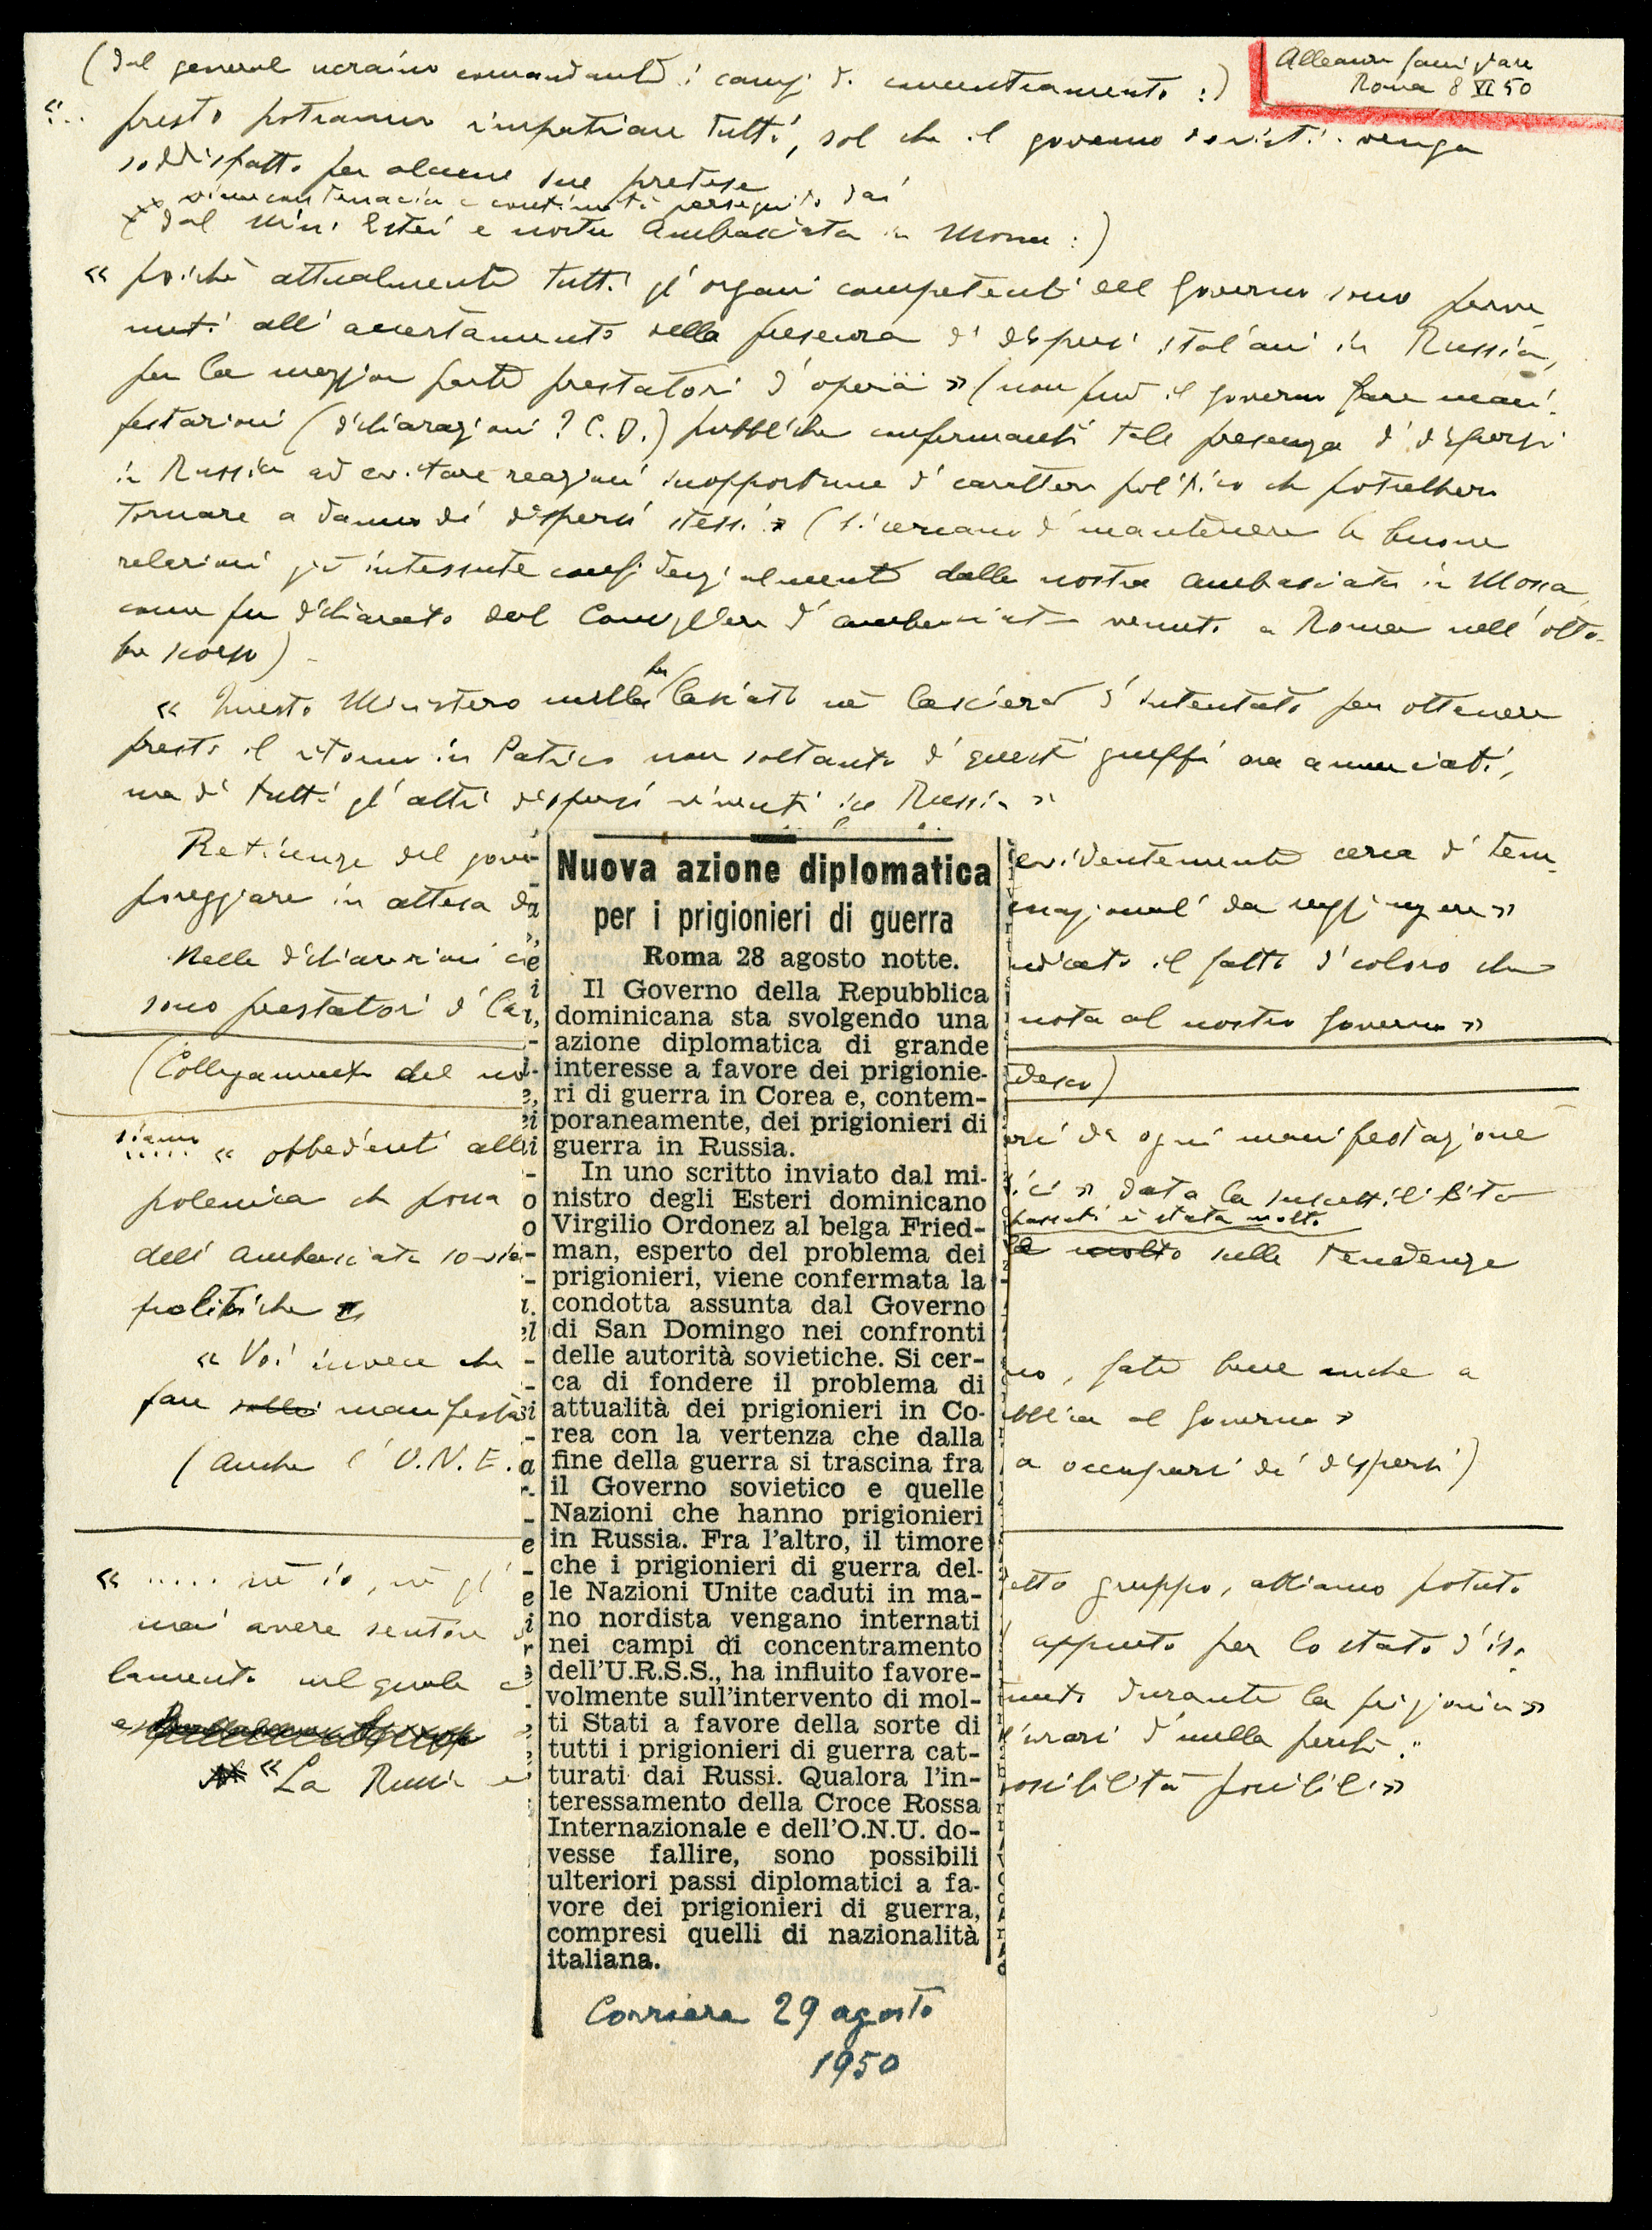 Alleanza famigliare
Roma 8 VI 50
(dal general ucraino comandante i campi di concentramento :)
«... presto potranno rimpatriare tutti, sol che il governo soviet. venga
soddisfatto per alcune sue pretese
viene con tenacia e continuità perseguito dai
dal Min. Esteri e nostra Ambasciata in Mosca :)
« poichè attualmente tutti gl' organi competenti del Governo sono perve-
nuti all' accertamento della presenza di dispersi italiani in Russia,
per la maggior parte prestatori d'opera » (non può il governo fare mani-
festazioni (dichiarazioni? C.D.) pubbliche confermanti tale presenza di dispersi
in Russia ad evitare reazioni inopportune di carattere politico che potrebbero
tornare a danno dei dispersi stessi » (si cercano di mantenere le buone
relazioni già intessute confidenzialmente dalla nostra ambasciata in Mosca,
come fu dichiarato dal Consigliere d'ambasciata venuto a Roma nell' otto-
bre scorso) -
« Questo Ministero nulla ha lasciato nè lascierà d'intentato per ottenere
presto il ritorno in Patria non soltanto di questi gruppi ora annunciati,
ma di tutti gl' altri dispersi viventi in Russia »
Reticenze del gove
evidentemente cerca di tem-
poreggiare in attesa
da raggiungere »
Nelle dichiarazioni
il fatto di coloro che
sono prestatori di
nota al nostro governo »
(Collegamento del
ogni manifestazione
siamo
..... « obbedienti
polemica che possa
data la suscettibilità
passati è stata molto
dell' Ambasciata
molto sulle tendenze
politiche
« Voi invece che
, fate bene anche a
fare manifesta
al governo »
(anche l' O.N.E.
a occuparsi dei dispersi)
« ..... nè io, nè gl'
gruppo, abbiamo potuto
mai avere sentore
appunto per lo stato d'iso-
lamento nel quale
durante la prigionia »
di nulla
« La Russia
possibili »
Nuova azione diplomatica
per i prigionieri di guerra
Roma 28 agosto notte.
Il Governo della Repubblica
dominicana sta svolgendo una
azione diplomatica di grande
interesse a favore dei prigionie-
ri di guerra in Corea e, contem-
poraneamente, dei prigionieri di
guerra in Russia.
In uno scritto inviato dal mi-
nistro degli Esteri dominicano
Virgilio Ordonez al belga Fried-
man, esperto del problema dei
prigionieri, viene confermata la
condotta assunta dal Governo
di San Domingo nei confronti
delle autorità sovietiche. Si cer-
ca di fondere il problema di
attualità dei prigionieri in Co-
rea con la vertenza che dalla
fine della guerra si trascina fra
il Governo sovietico e quelle
Nazioni che hanno prigionieri
in Russia. Fra l'altro, il timore
che i prigionieri di guerra del-
le Nazioni Unite caduti in ma-
no nordista vengano internati
nei campi di concentramento
dell'U.R.S.S., ha influito favore-
volmente sull'intervento di mol-
ti Stati a favore della sorte di
tutti i prigionieri di guerra cat-
turati dai Russi. Qualora l'in-
teressamento della Croce Rossa
Internazionale e dell'O.N.U. do-
vesse fallire, sono possibili
ulteriori passi diplomatici a fa-
vore dei prigionieri di guerra,
compresi quelli di nazionalità
italiana.
Corriere 29 agosto
1950